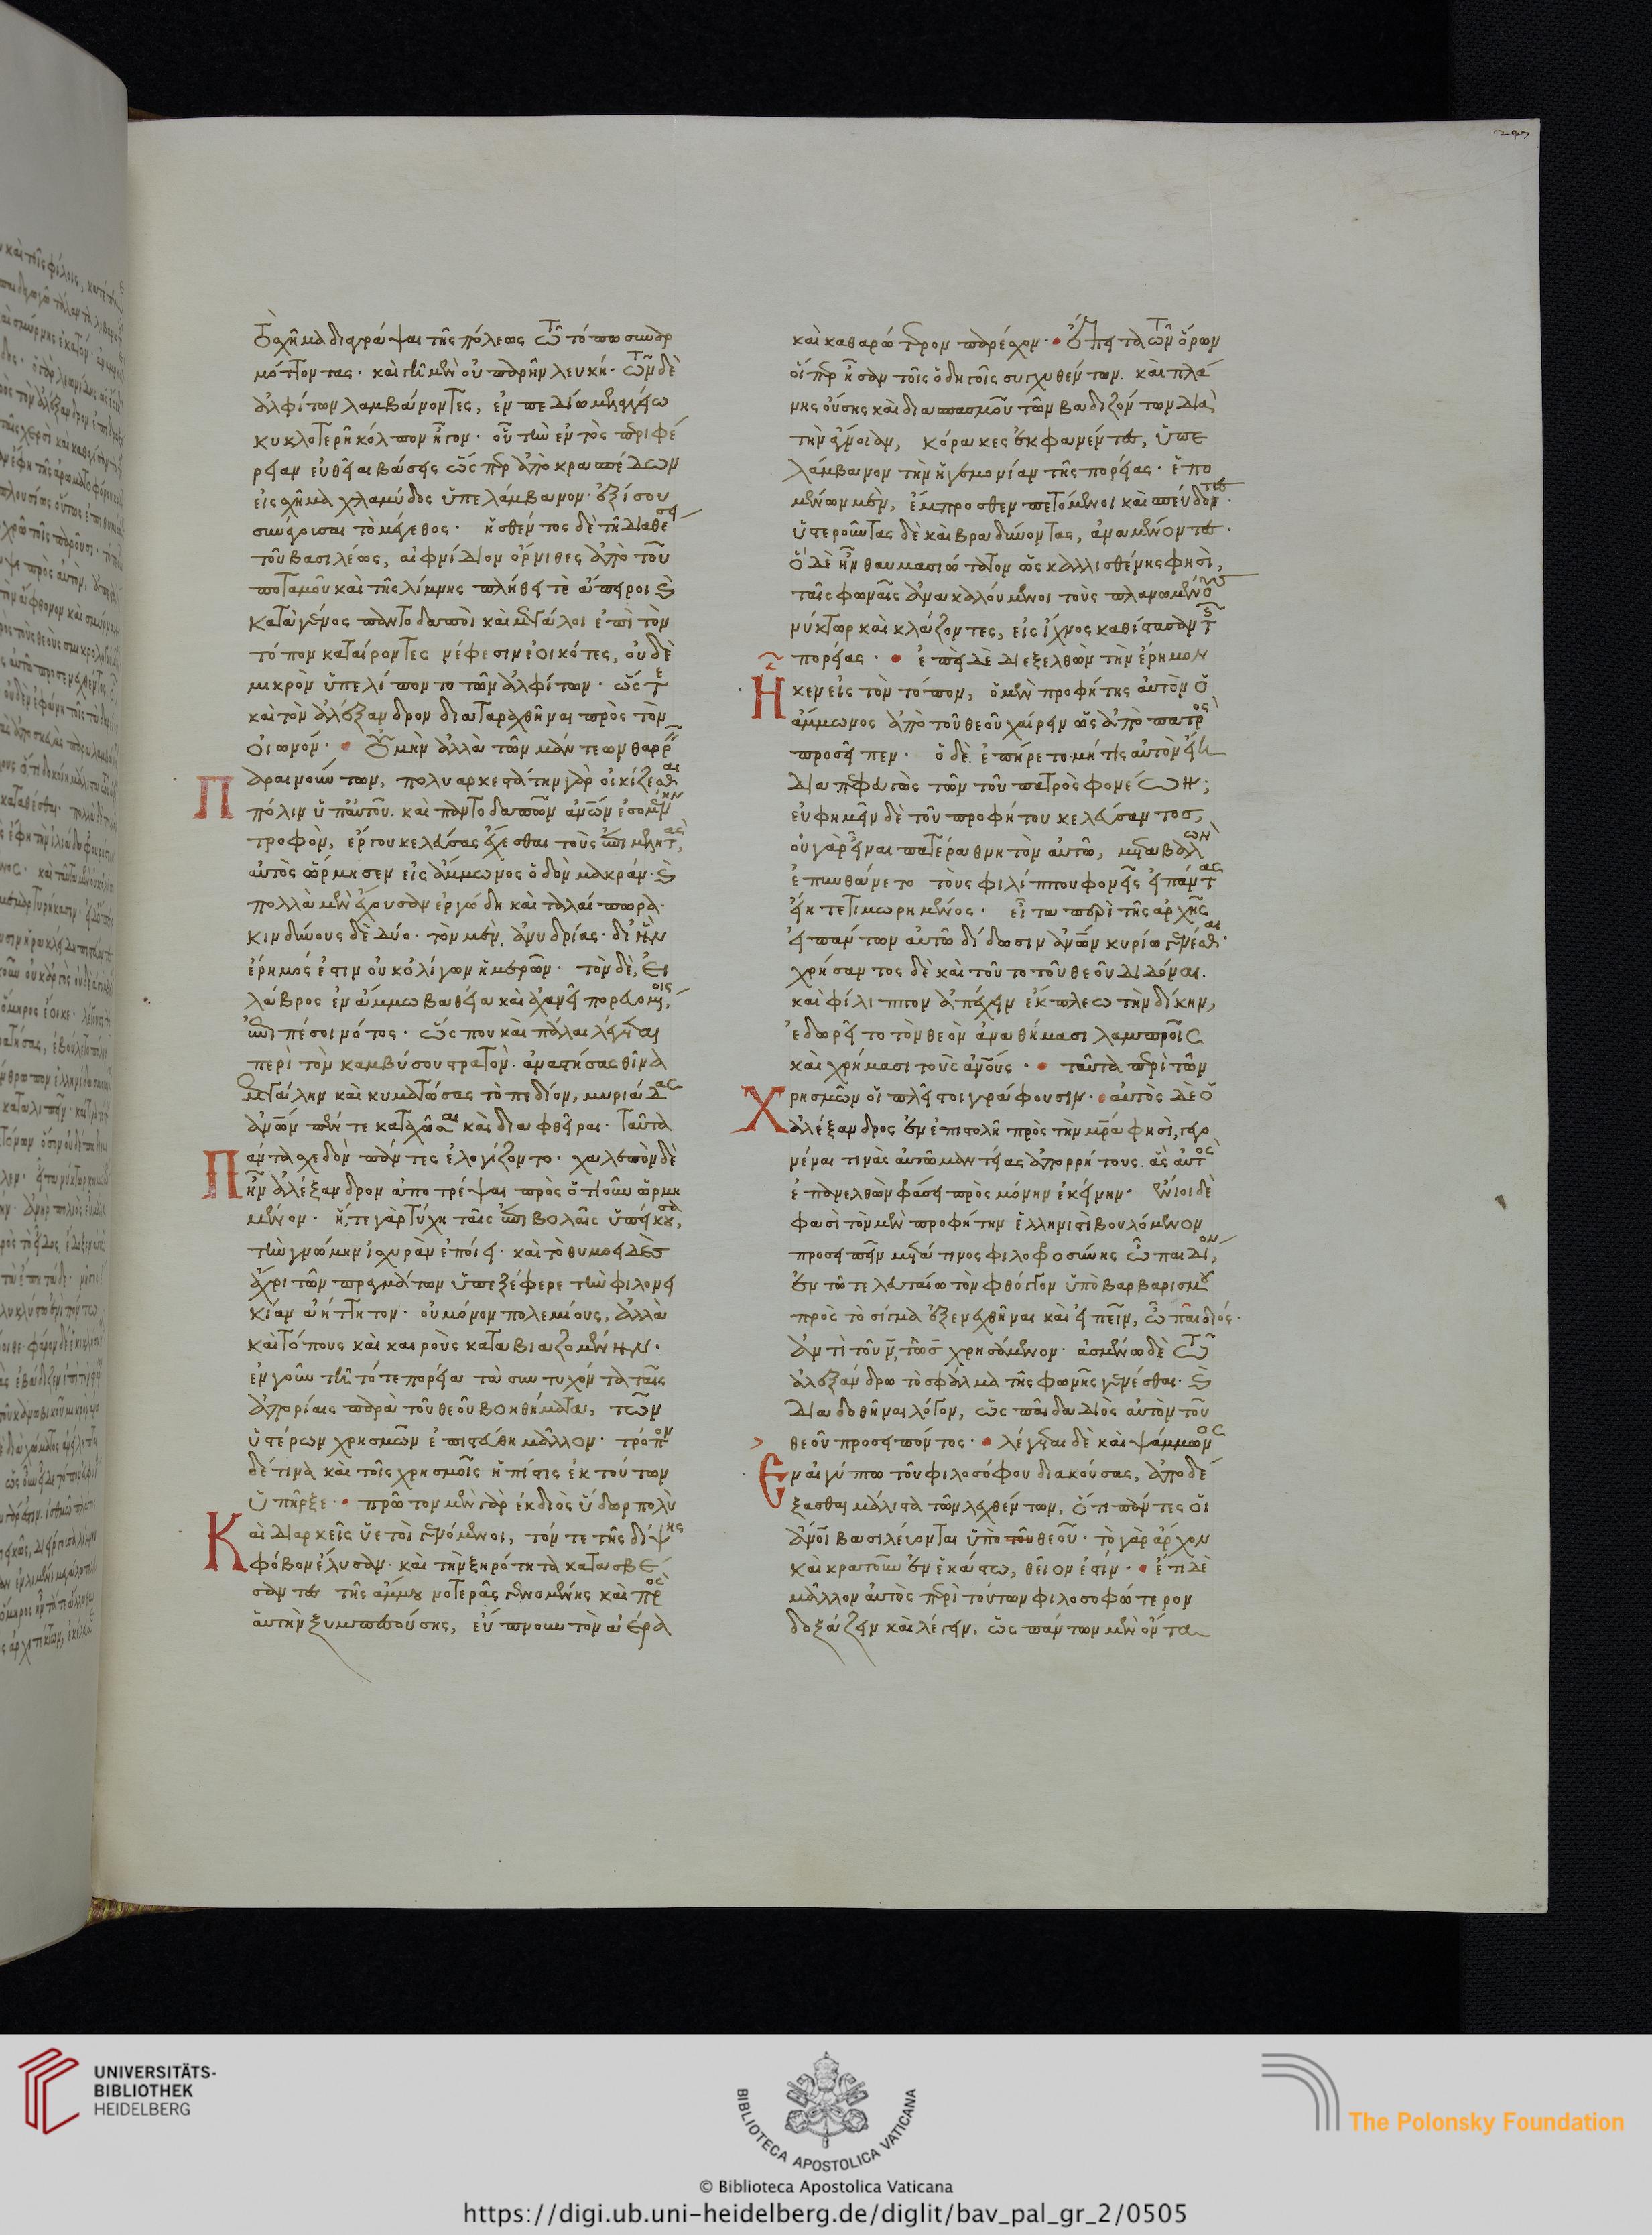 τὸ σχῆμα διαγράψαι τῆς πόλεως τῷ τόπῳ συναρ
μόττοντας. καὶ γῆ μὲν οὐ παρῆν λευκή. τῶν δὲ
ἀλφίτων λαμβάνοντες, ἐν πεδίῳ μελαγγείῳ
κυκλοτερῆ κόλπον ἦγον. οὗ τὴν ἐντὸς περιφέ
ρειαν εὐθεῖαι βάσεις ὥσπερ ἀπὸ κρασπέδων
εἰς σχῆμα χλαμύδος ὑπελάμβανον. ἐξ ἴσου
συνάγουσαι τὸ μέγεθος. ἡσθέντος δὲ τῇ διαθέσει
τοῦ βασιλέως, αἰφνίδιον ὄρνιθες ἀπὸ τοῦ
ποταμοῦ καὶ τῆς λίμνης πλήθει τὲ ἄπειροι καὶ
κατὰ γένος παντοδαποὶ καὶ μεγάλοι ἐπὶ τὸν
τόπον καταίροντες νέφεσιν ἐοικότες, οὐδὲ
μικρὸν ὑπελίποντο τῶν ἀλφίτων. ὥστε
καὶ τὸν ἀλέξανδρον διαταραχθῆναι πρὸς τὸν
οἰωνόν. οὐ μὴν ἀλλὰ τῶν μάντεων θαρρεῖν
Παραινούντων, πολυαρκεστάτην γὰρ οἰκίζεσθαι
πόλιν ὑπ' αὐτοῦ. καὶ παντοδαπῶν ἀνθρώπων ἐσομένην
τροφὸν, ἔργου κελεύσας ἔχεσθαι τοὺς ἐπιμελητὰς,
αὐτὸς ὥρμησεν εἰς ἄμμωνος ὁδὸν μακράν. καὶ
πολλὰ μὲν ἔχουσαν ἐργώδη καὶ ταλαίπωρα.
κινδύνους δὲ δύο. τὸν μὲν, ἀνυδρίας. δι' ἣν
ἔρημός ἐστιν οὐκ ὀλίγων ἡμερῶν. τὸν δὲ, εἰ
λάβρος ἐν ἄμμω βαθεία καὶ ἀχανεῖ πορευομένοις,
ἐπιπέσοι νότος. ὥς που καὶ πάλαι λέγεται
περὶ τὸν καμβύσου στρατὸν. ἀναστήσας θῖνα
μεγάλην καὶ κυματώσας τὸ πεδίον, μυριάδας
ἀνθρώπων πέντε καταχῶσαι καὶ διαφθεῖραι. ταῦτα
Πάντα σχεδὸν πάντες ἐλογίζοντο. χαλεπὸν δὲ
ἦν ἀλέξανδρον ἀποτρέψαι πρὸς ὁτιοῦν ὡρμη
μένον. ἥ, τε γὰρ τύχη ταῖς ἐπιβολαῖς ὑπείκουσα,
τὴν γνώμην ἰσχυρὰν ἐποίει. καὶ τὸ θυμοειδὲς
ἄχρι τῶν πραγμάτων ὑπεξέφερε τὴν φιλονει
κίαν ἀήττητον. οὐ μόνον πολεμίους, ἀλλὰ
καὶ τόπους καὶ καιροὺς καταβιαζομένην.
ἐν γοῦν τῆ τότε πορεία τὰ συντυχόντα ταῖς
ἀπορίαις παρὰ τοῦ θεοῦ βοηθήματα, τῶν
ὑστέρων χρησμῶν ἐπιστεύθη μᾶλλον. τρόπον
δέ τινα καὶ τοῖς χρησμοῖς ἡ πίστις ἐκ τούτων
ὑπῆρξε. πρῶτον μὲν γὰρ ἐκ διὸς ὕδωρ πολὺ
Καὶ διαρκεῖς ὑετοὶ γενόμενοι, τόν τε τῆς δίψης
φόβον ἔλυσαν. καὶ τὴν ξηρότητα κατασβέ
σαντες τῆς ἄμμου νοτερᾶς γενομένης καὶ πρὸς
αὑτὴν ξυμπεσούσης, εὔπνουν τὸν ἀέρα
καὶ καθαρώτερον παρέσχον. ἔπειτα τῶν ὅρων
οἵπερ ἦσαν τοῖς ὁδηγοῖς συγχυθέντων. καὶ πλά
νης οὔσης καὶ διασπασμοῦ τῶν βαδιζόντων διὰ
τὴν ἄγνοιαν, κόρακες ἐκφανέντες, ὑπε
λάμβανον τὴν ἡγεμονίαν τῆς πορείας. ἑπο
μένων μὲν, ἔμπροσθεν πετόμενοι καὶ σπεύδοντες
ὑστεροῦντας δὲ καὶ βραδύνοντας, ἀναμένοντες.
ὃ δὲ ἦν θαυμασιώτατον ὡς καλλισθένης φησὶ,
ταῖς φωναῖς ἀνακαλούμενοι τοὺς πλανωμένους
νύκτωρ καὶ κλάζοντες, εἰς ἴχνος καθίστασαν τῆς
πορείας. ἐπεὶ δὲ διεξελθὼν τὴν ἔρημον
Ἧκεν εἰς τὸν τόπον, ὁ μὲν προφήτης αὐτὸν ὁ
ἄμμωνος ἀπὸ τοῦ θεοῦ χαίρειν ὡς ἀπὸ πατρὸς
προσεῖπεν. ὁ δὲ. ἐπήρετο μή τις αὐτὸν εἴη
διαπεφευγὼς τῶν τοῦ πατρὸς φονέων;
εὐφημεῖν δὲ τοῦ προφήτου κελεύσαντος,
οὐ γὰρ εἶναι πατέρα θνητὸν αὐτῶ, μεταβαλὼν
ἐπυνθάνετο τοὺς φιλίππου φονεῖς εἰ πάντας
εἴη τετιμωρημένος. εἶτα περὶ τῆς ἀρχῆς
εἰ πάντων αὐτῶ δίδωσιν ἀνθρώπων κυρίω γενέσθαι.
χρήσαντος δὲ καὶ τοῦτο τοῦ θεοῦ διδόναι.
καὶ φίλιππον ἀπέχειν ἔκπλεω τὴν δίκην,
ἐδωρεῖτο τὸν θεὸν ἀναθήμασι λαμπροῖς
καὶ χρήμασι τοὺς ἀνθρώπους. ταῦτα περὶ τῶν
Χρησμῶν οἱ πλεῖστοι γράφουσιν. αὐτὸς δὲ ὁ
ἀλέξανδρος ἐν ἐπιστολῆ πρὸς τὴν μητέρα φησὶ, γεγο
νέναι τινὰς αὐτῶ μαντείας ἀπορρήτους. ἃς αὐτὸς
ἐπανελθὼν φράσει πρὸς μόνην ἐκείνην. ἔνιοι δὲ
φασὶ τὸν μὲν προφήτην ἑλληνιστὶ βουλόμενον
προσειπεῖν μετά τινος φιλοφροσύνης ὦ παιδίον,
ἐν τῶ τελευταίω τὸν φθόγγον ὑπὸ βαρβαρισμοῦ
πρὸς τὸ σίγμα ἐξενεχθῆναι καὶ εἰπεῖν, ὦ παιδιός.
ἀντὶ τοῦ ν, τῶ σ χρησάμενον. ἀσμένω δὲ τῶ
ἀλεξάνδρω τὸ σφάλμα τῆς φωνῆς γενέσθαι. καὶ
διαδοθῆναι λόγον, ὡς παῖδα διὸς αὐτὸν τοῦ
θεοῦ προσειπόντος. λέγεται δὲ καὶ ψάμμωνος
Ἐν αἰγύπτω τοῦ φιλοσόφου διακούσας, ἀποδέ
ξασθαι μάλιστα τῶν λεχθέντων, ὅτι πάντες οἱ
ἄνθρωποι βασιλεύονται ὑπὸ τοῦ θεοῦ. τὸ γὰρ ἄρχον
καὶ κρατοῦν ἐν ἑκάστω, θεῖον ἐστίν. ἔτι δὲ
μᾶλλον αὐτὸς περὶ τούτων φιλοσοφώτερον
δοξάζειν καὶ λέγειν, ὡς πάντων μὲν ὄντα
UNIVERSITÄTS-
BIBLIOTHEK
HEIDELBERG
BIBLIOTECA APOSTOLICA VATICANA
The Polonsky Foundation
© Biblioteca Apostolica Vaticana
https://digi.ub.uni-heidelberg.de/diglit/bav_pal_gr_2/0505